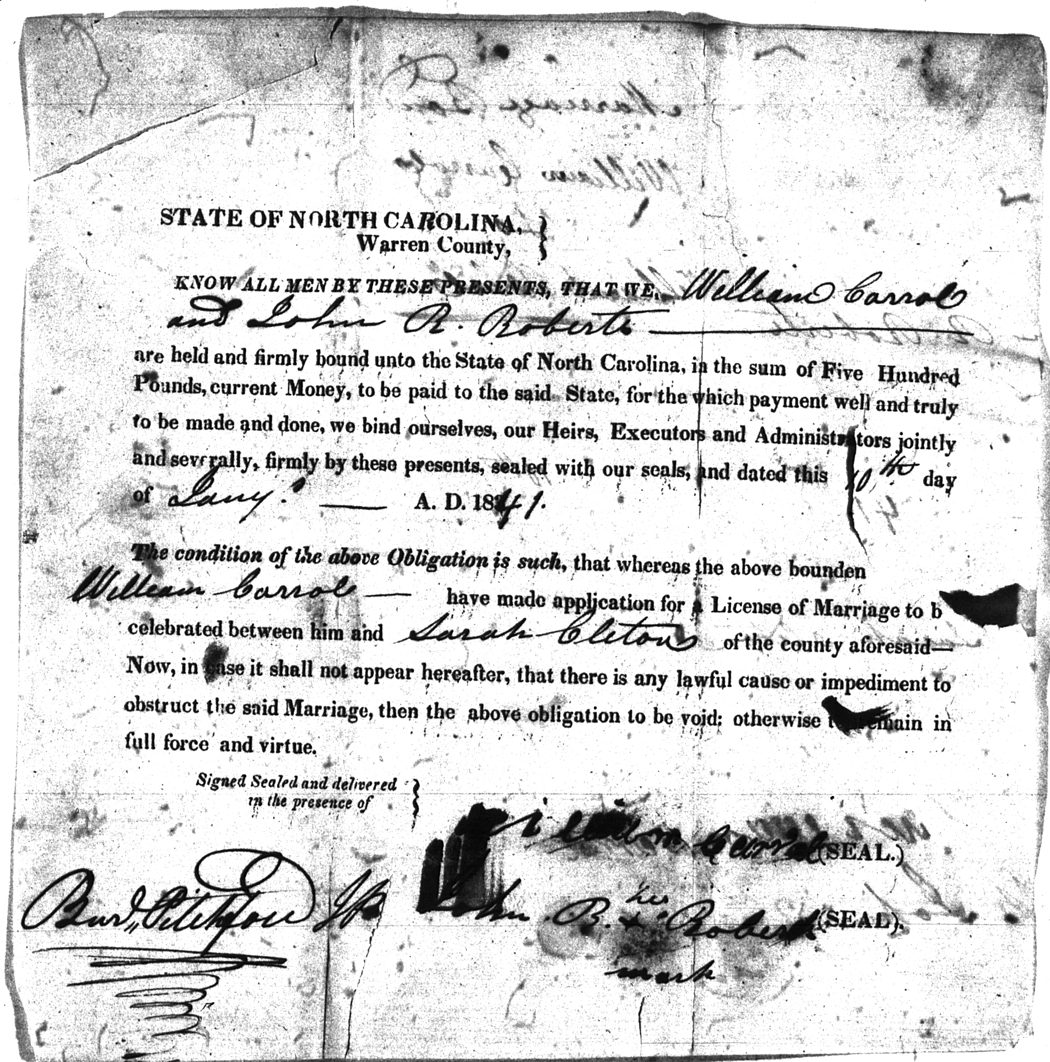 Marriage Bon
William Carrol
STATE OF NORTH CAROLINA,
Warren County,
KNOW ALL MEN BY THESE PRESENTS, THAT WE, William Carrol
and John R. Roberts
are held and firmly bound unto the State of North Carolina, in the sum of Five Hundred
Pounds, current Money, to be paid to the said State, for the which payment well and truly
to be made and done, we bind ourselves, our Heirs, Executors and Administrators jointly
and severally, firmly by these presents, sealed with our seals, and dated this 10th day
of Jany. A. D. 1841.
The condition of the above Obligation is such, that whereas the above bounden
William Carrol have made application for a License of Marriage to b
celebrated between him and Sarah of the county aforesaid—
Now, in case it shall not appear hereafter, that there is any lawful cause or impediment to
obstruct the said Marriage, then the above obligation to be void: otherwise to remain in
full force and virtue.
Signed Sealed and delivered
in the presence of
William Carrol (SEAL.)
his
John R. x Roberts (SEAL).
mark
JP